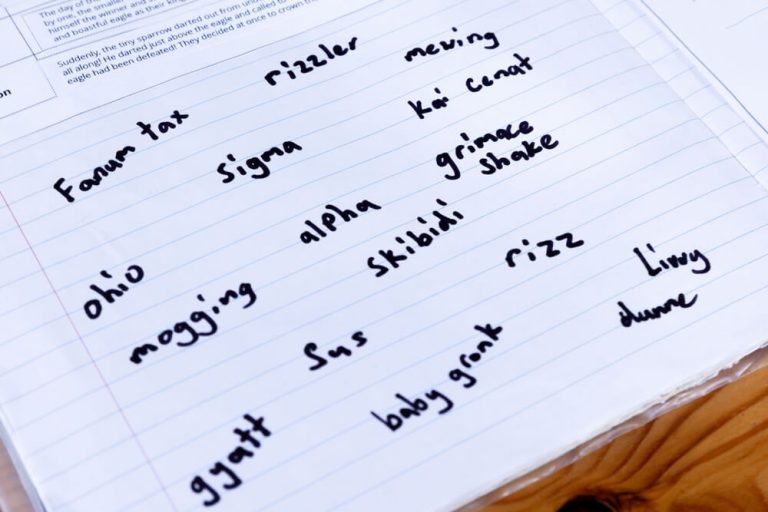 The day of the
by one, the smaller
himself the winner and s
and boastful eagle as their king
Suddenly, the tiny sparrow darted out from un
all along! He darted just above the eagle and called to
eagle had been defeated! They decided at once to crown the
on
rizzler
mewing
Kai Cenat
Fanum tax
sigma
grimace
shake
alpha
skibidi
rizz
Livvy
dunne
ohio
mogging
Sus
baby gronk
gyatt